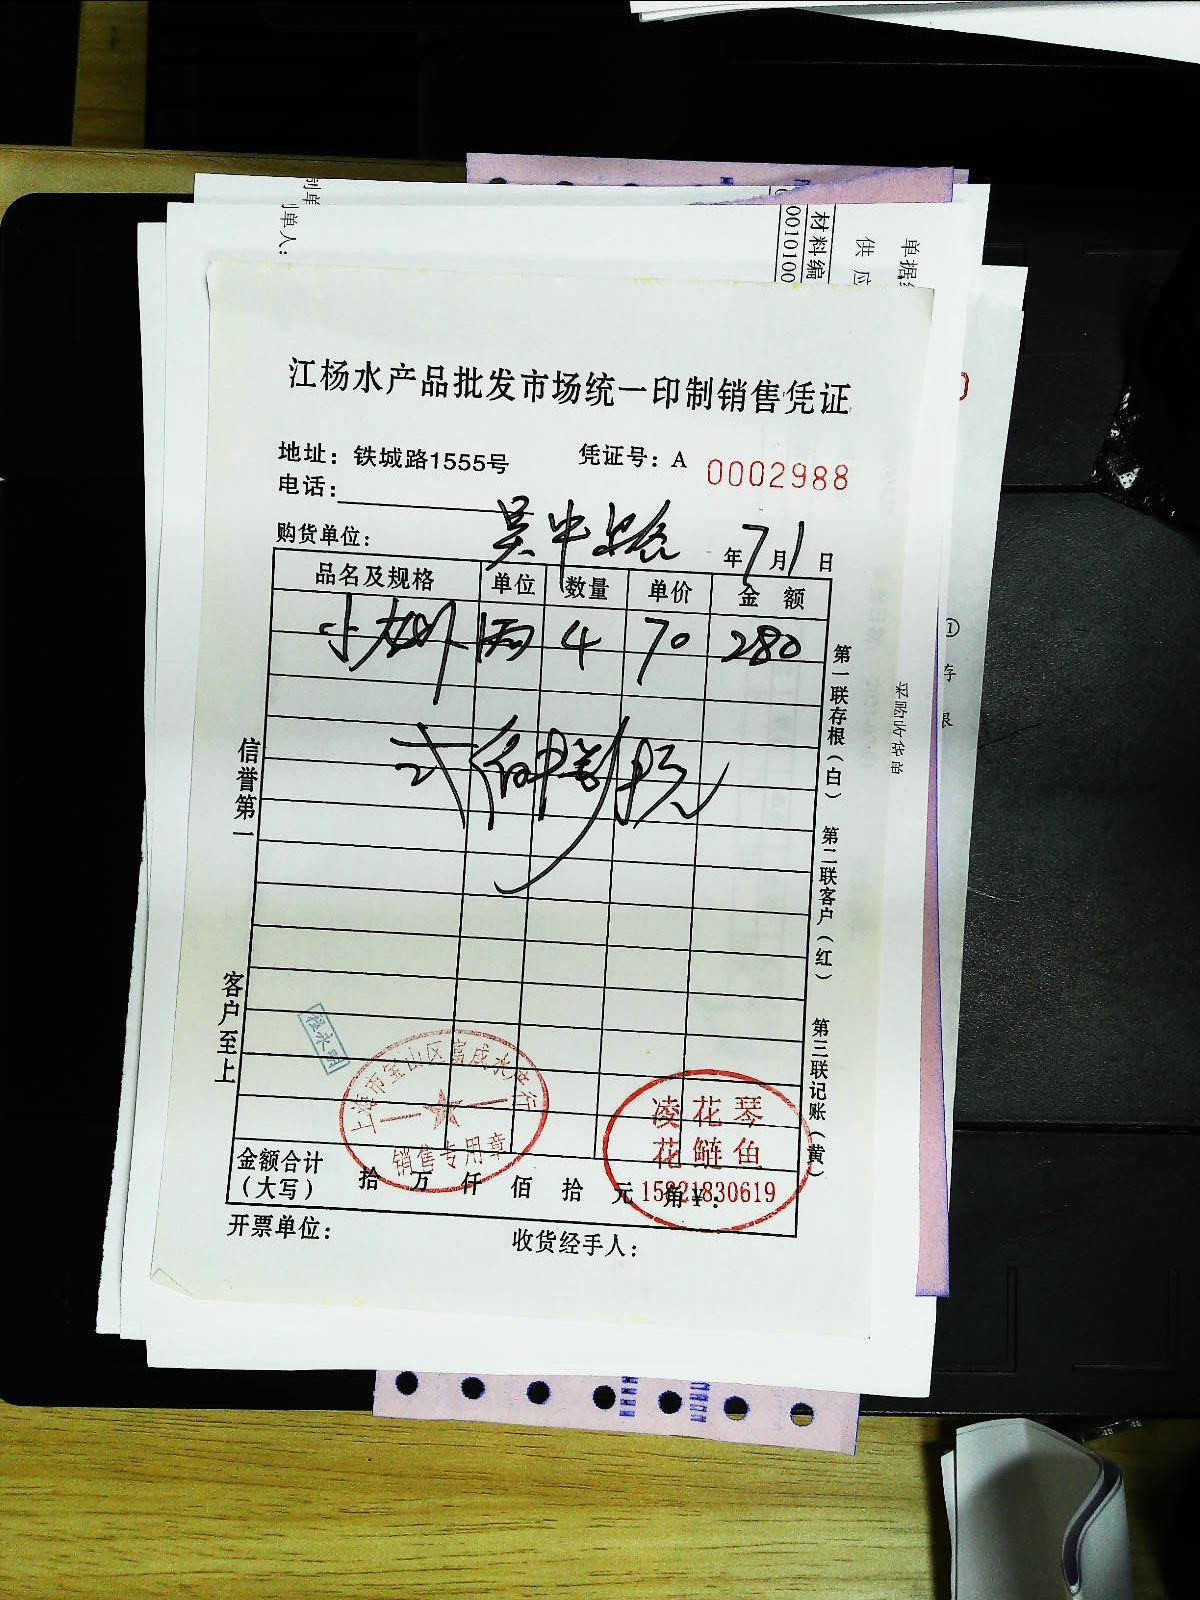 制单
制单人:
材料编
0010100
供应
单据编
江杨水产品批发市场统一印制销售凭证
地址：铁城路1555号 凭证号：A 0002988
电话：
购货单位： 吴中路 年7月1日
品名及规格 单位 数量 单价 金额
4 70 280
弍佰捌拾元
信誉第一
客户至上
第一联存根（白）
第二联客户（红）
第三联记账（黄）
采购收货单
上海市宝山区富成水产行
销售专用章
凌花琴
花鲢鱼
15821830619
金额合计（大写） 拾 万 仟 佰 拾 元 角 ￥：
开票单位： 收货经手人：